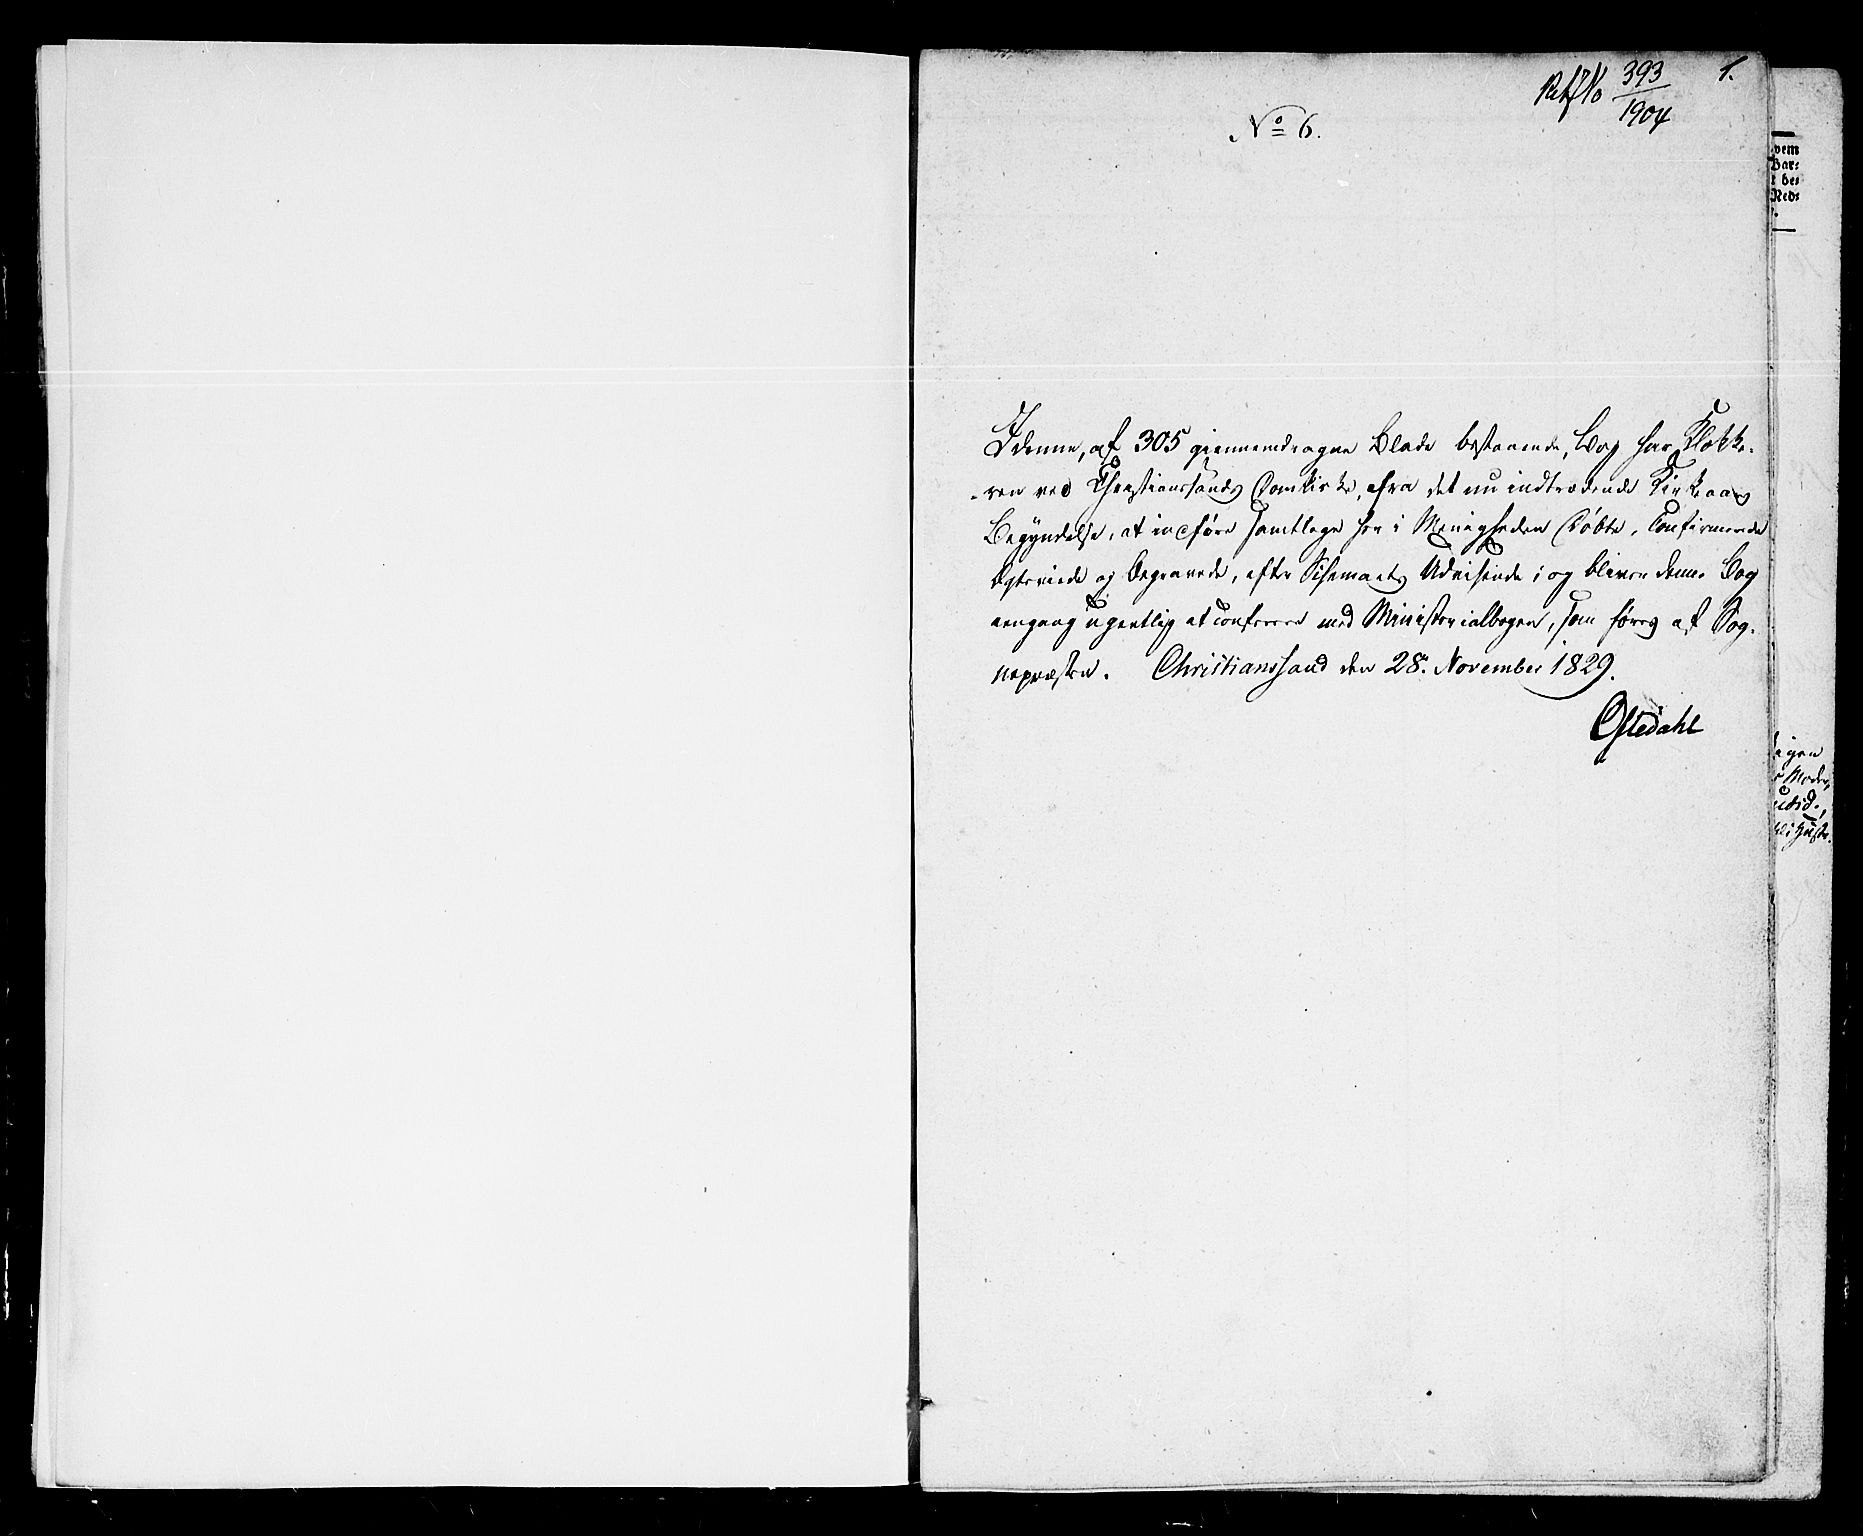 1.
393
1904
No 6.
I denne, af 305 giennemdragne Blade bestaaende, Bog har Klokke-
ren ved Christianssands Domkirke, fra det nu indtrædende Kirkeaars
Begyndelse, at indføre samtlige her i Menigheden Døbte, Confirmerede
Ægteviede og Begravede, efter Schemaets Udvisende; og bliver denne Bog
eengang ugentlig at conferere med Ministerialbogen, som føres af Sog-
nepræsten. Christianssand den 28. November 1829.
Oftedahl
vem
Bar-
des
Ned-